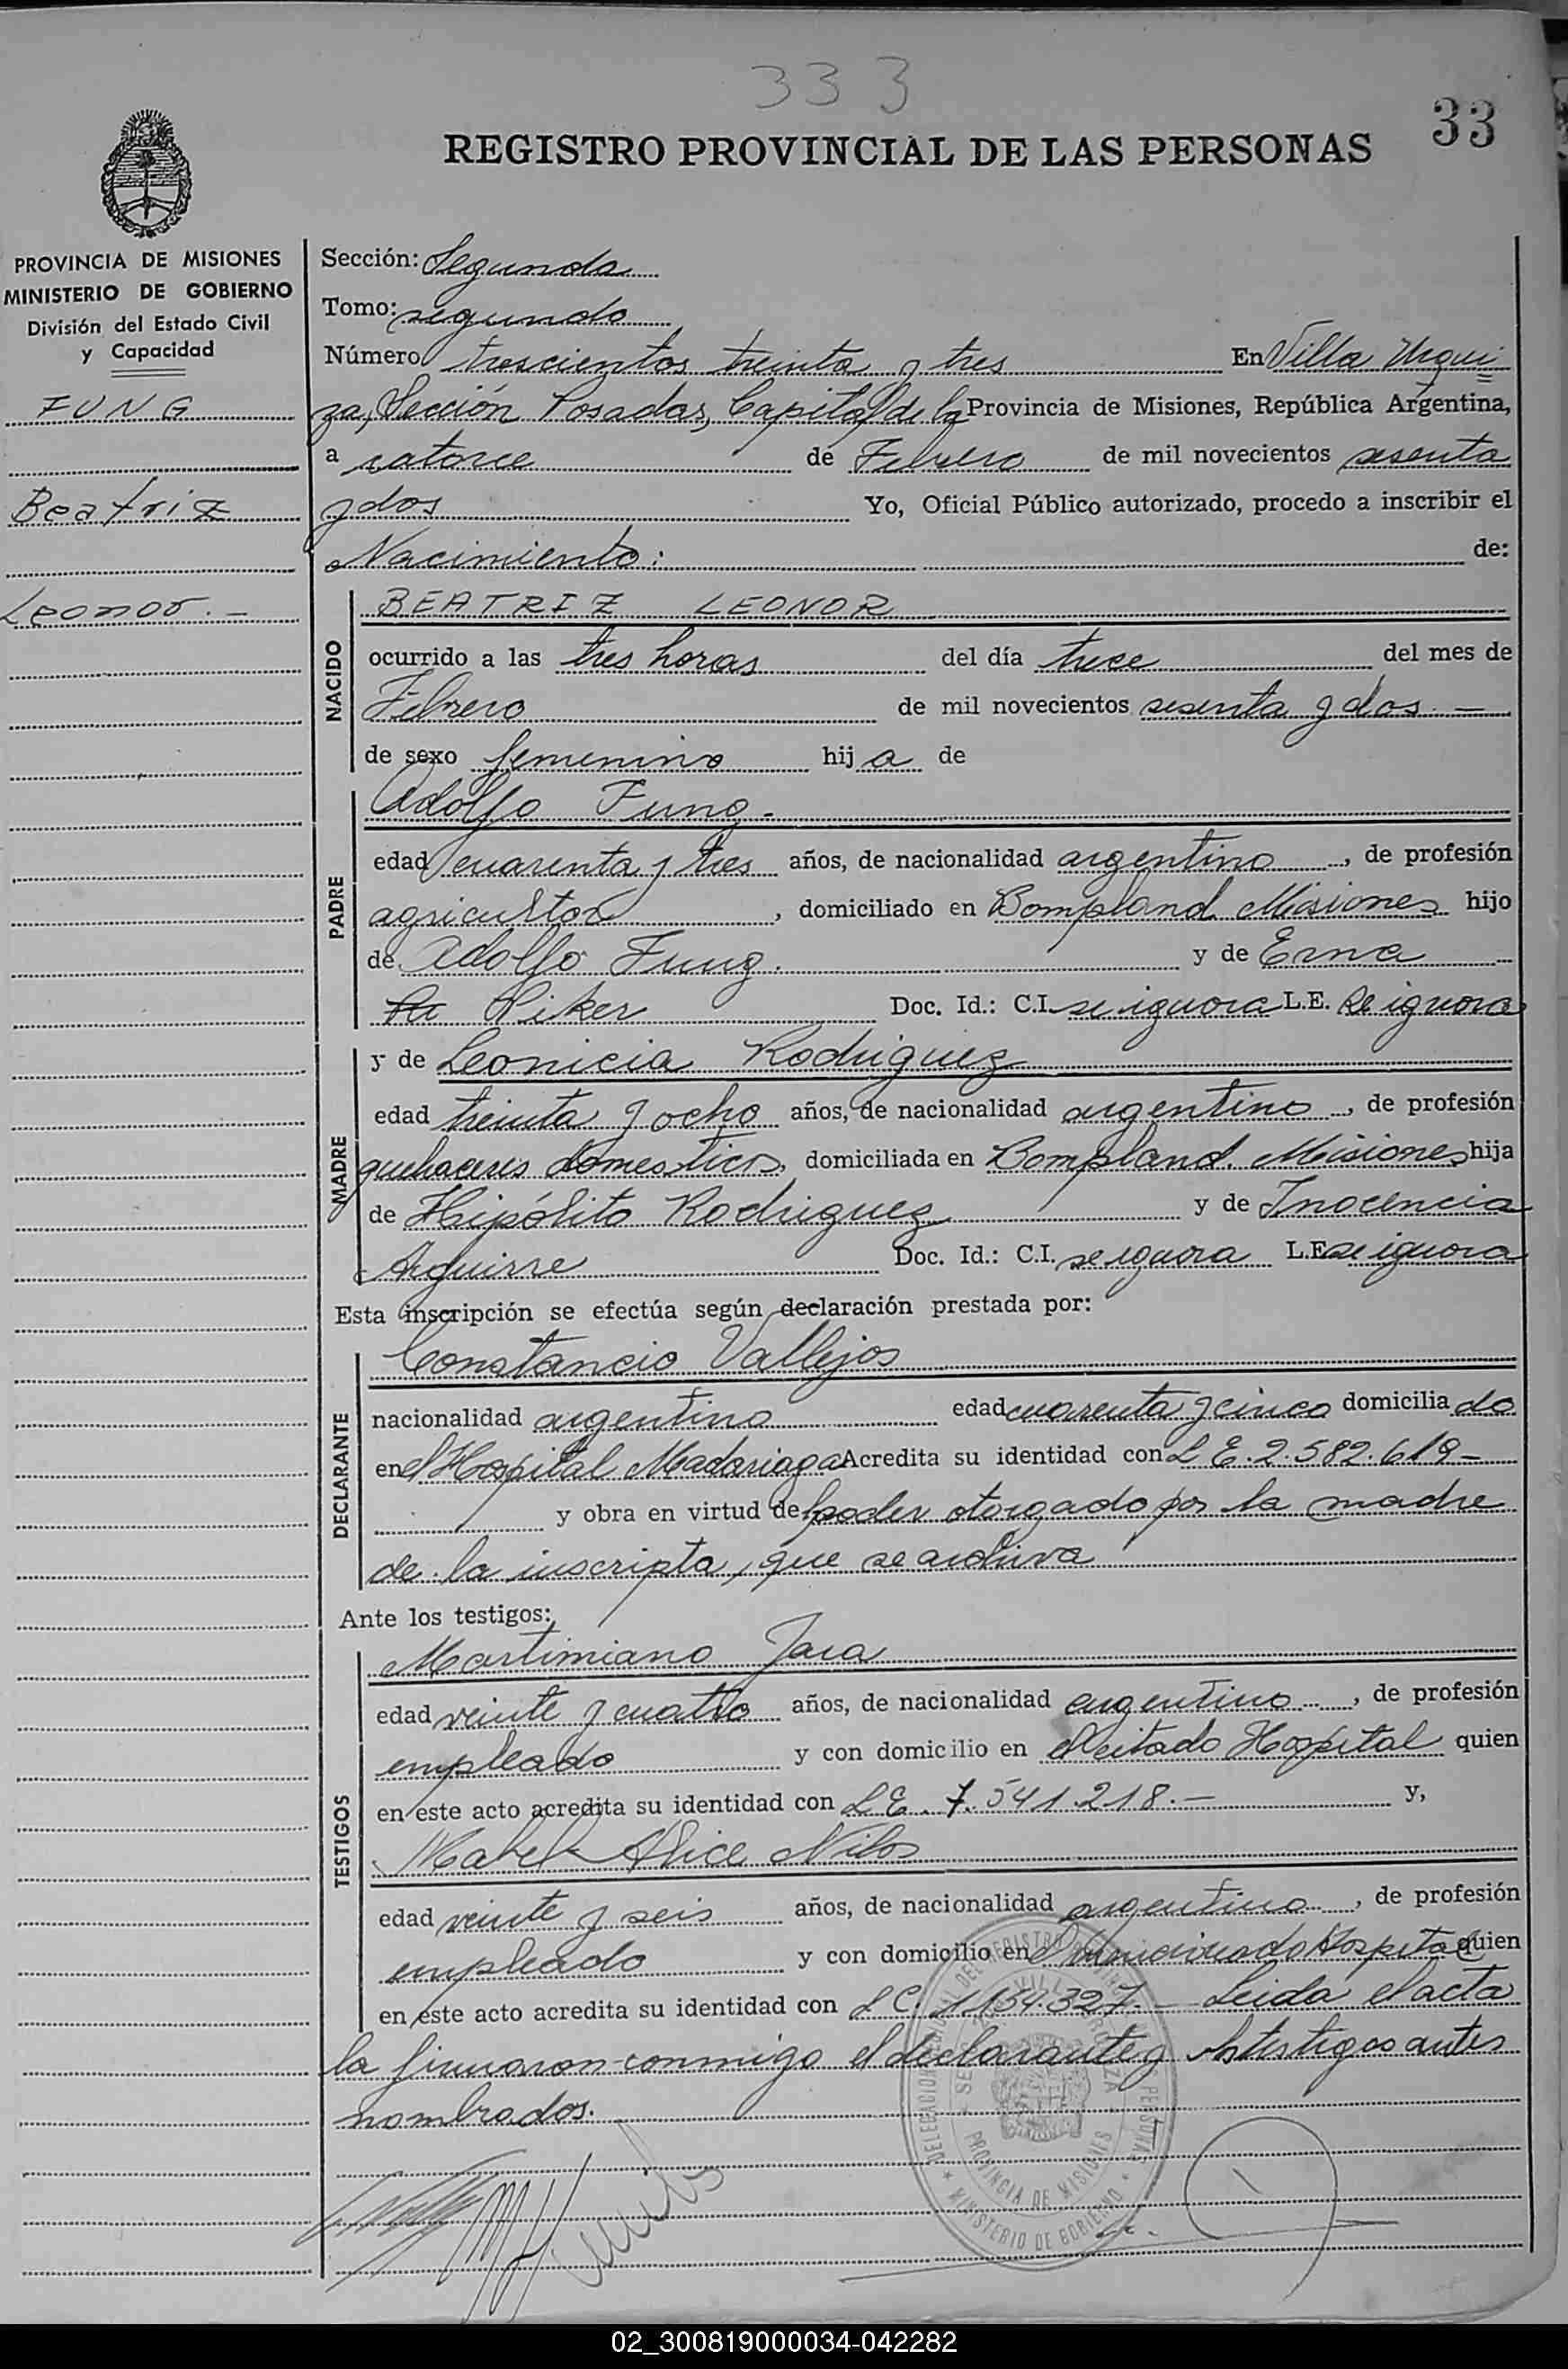 333
33
REGISTRO PROVINCIAL DE LAS PERSONAS
PROVINCIA DE MISIONES
MINISTERIO DE GOBIERNO
División del Estado Civil
y Capacidad
FUNG
Beatriz
Leonor.-
Sección: Segunda
Tomo: segundo
Número trescientos treinta y tres En Villa Urqui
za, Sección Posadas, Capital de la Provincia de Misiones, República Argentina,
a catorce de Febrero de mil novecientos sesenta
y dos Yo, Oficial Público autorizado, procedo a inscribir el
Nacimiento: de:
NACIDO
BEATRIZ LEONOR
ocurrido a las tres horas del día trece del mes de
Febrero de mil novecientos sesenta y dos.—
de sexo femenino hij a de
PADRE
Adolfo Fung.
edad cuarenta y tres años, de nacionalidad argentino, de profesión
agricultor, domiciliado en Bompland. Misiones hijo
de Adolfo Fung. y de Erna
Piker Doc. Id.: C.I. se ignora L.E. se ignora
MADRE
y de Leonicia Rodriguez
edad treinta y ocho años, de nacionalidad argentino, de profesión
quehaceres domesticos, domiciliada en Bompland. Misiones hija
de Hipólito Rodriguez y de Inocencia
Arguirre Doc. Id.: C.I. se ignora L.E. se ignora
Esta inscripción se efectúa según declaración prestada por:
DECLARANTE
Constancio Vallejos
nacionalidad argentino edad cuarenta y cinco domicilia do
en el Hospital Madariaga Acredita su identidad con L E. 2.582.619-
y obra en virtud de poder otorgado por la madre
de la inscripta, que se archiva
Ante los testigos:
TESTIGOS
Martimiano Jara
edad veinte y cuatro años, de nacionalidad argentino, de profesión
empleado y con domicilio en el citado Hospital quien
en este acto acredita su identidad con L E. 7.541.218.— y,
Mabel Alice
edad veinte y seis años, de nacionalidad argentino, de profesión
empleado y con domicilio en el mencionado Hospital quien
en este acto acredita su identidad con L C. 1.154.327.— Leida el acta
la firmaron conmigo el declarante y los testigos antes
nombrados.
PROVINCIA DE MISIONES
MINISTERIO DE GOBIERNO
02_300819000034-042282